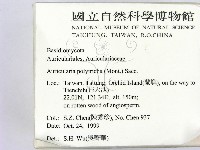 國立自然科學博物館
NATIONAL MUSEUM OF NATURAL SCIENCE
TAICHUNG, TAIWAN, R.O.CHINA
Basidiomycota
Auriculariales, Auriculariaceae
Auricularia polytricha (Mont.) Sacc.
Loc. Taiwan, Taitung, Orchid Island (蘭嶼), on the way to
22.01N, 121.34E, alt. 150m;
on rotten wood of angiosperm.
Coll.: S.Z. Chen, No. Chen 937
Date: Oct. 24, 1999
Det.: S.H. Wu